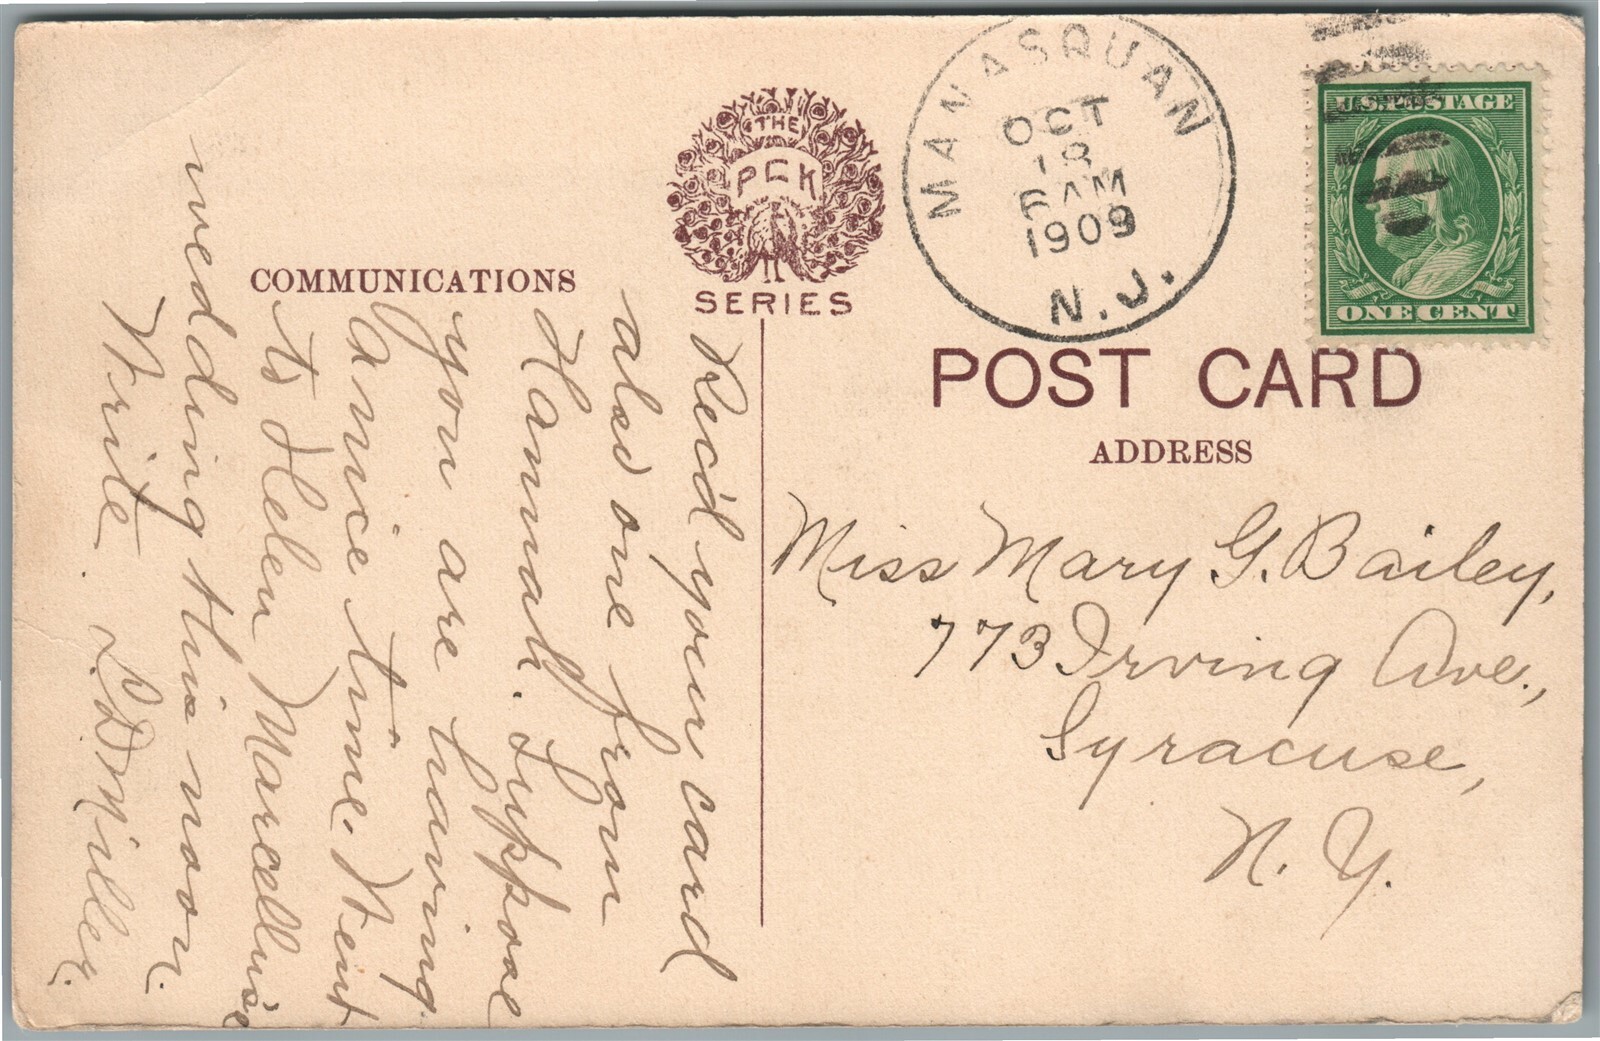 COMMUNICATIONS
THE
PCK
SERIES
MANASQUAN
OCT
18
6 AM
1909
N.J.
U.S. POSTAGE
ONE CENT
POST CARD
ADDRESS
Miss Mary G. Bailey,
773 Irving Ave.,
Syracuse,
N. Y.
Rec'd your card
also one from
Hannah. Suppose
you are having
a nice time. Went
to Helen Marcellus's
wedding this noon.
Write. L.D. Miller.